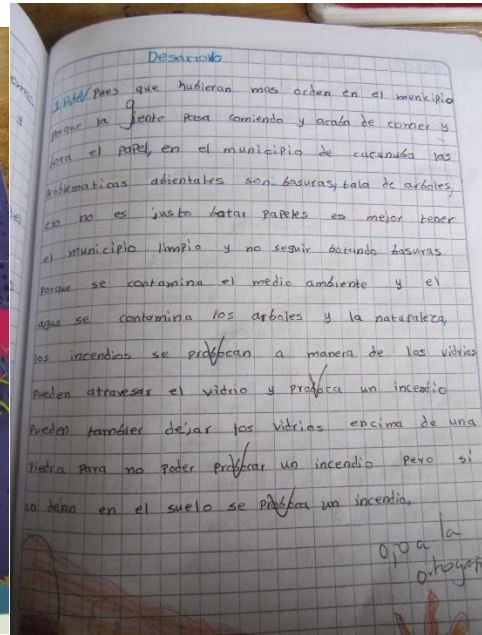 Desarrollo
1. R/N Pues que hubieran mas orden en el municipio
porque la gente pasa comiendo y acaba de comer y
bota el papel, en el municipio de cucunuba las
problematicas abientales son: basuras, tala de arboles,
eso no es justo botar papeles es mejor tener
el municipio limpio y no seguir botando basuras
porque se contamina el medio ambiente y el
agua se contamina los arboles y la naturaleza,
los incendios se probocan a manera de los vidrios
pueden atravesar el vidrio y proboca un incendio
pueden tambien dejar los vidrios encima de una
piedra para no poder probocar un incendio pero si
lo dejan en el suelo se proboca un incendio.
ojo a la
ortograf